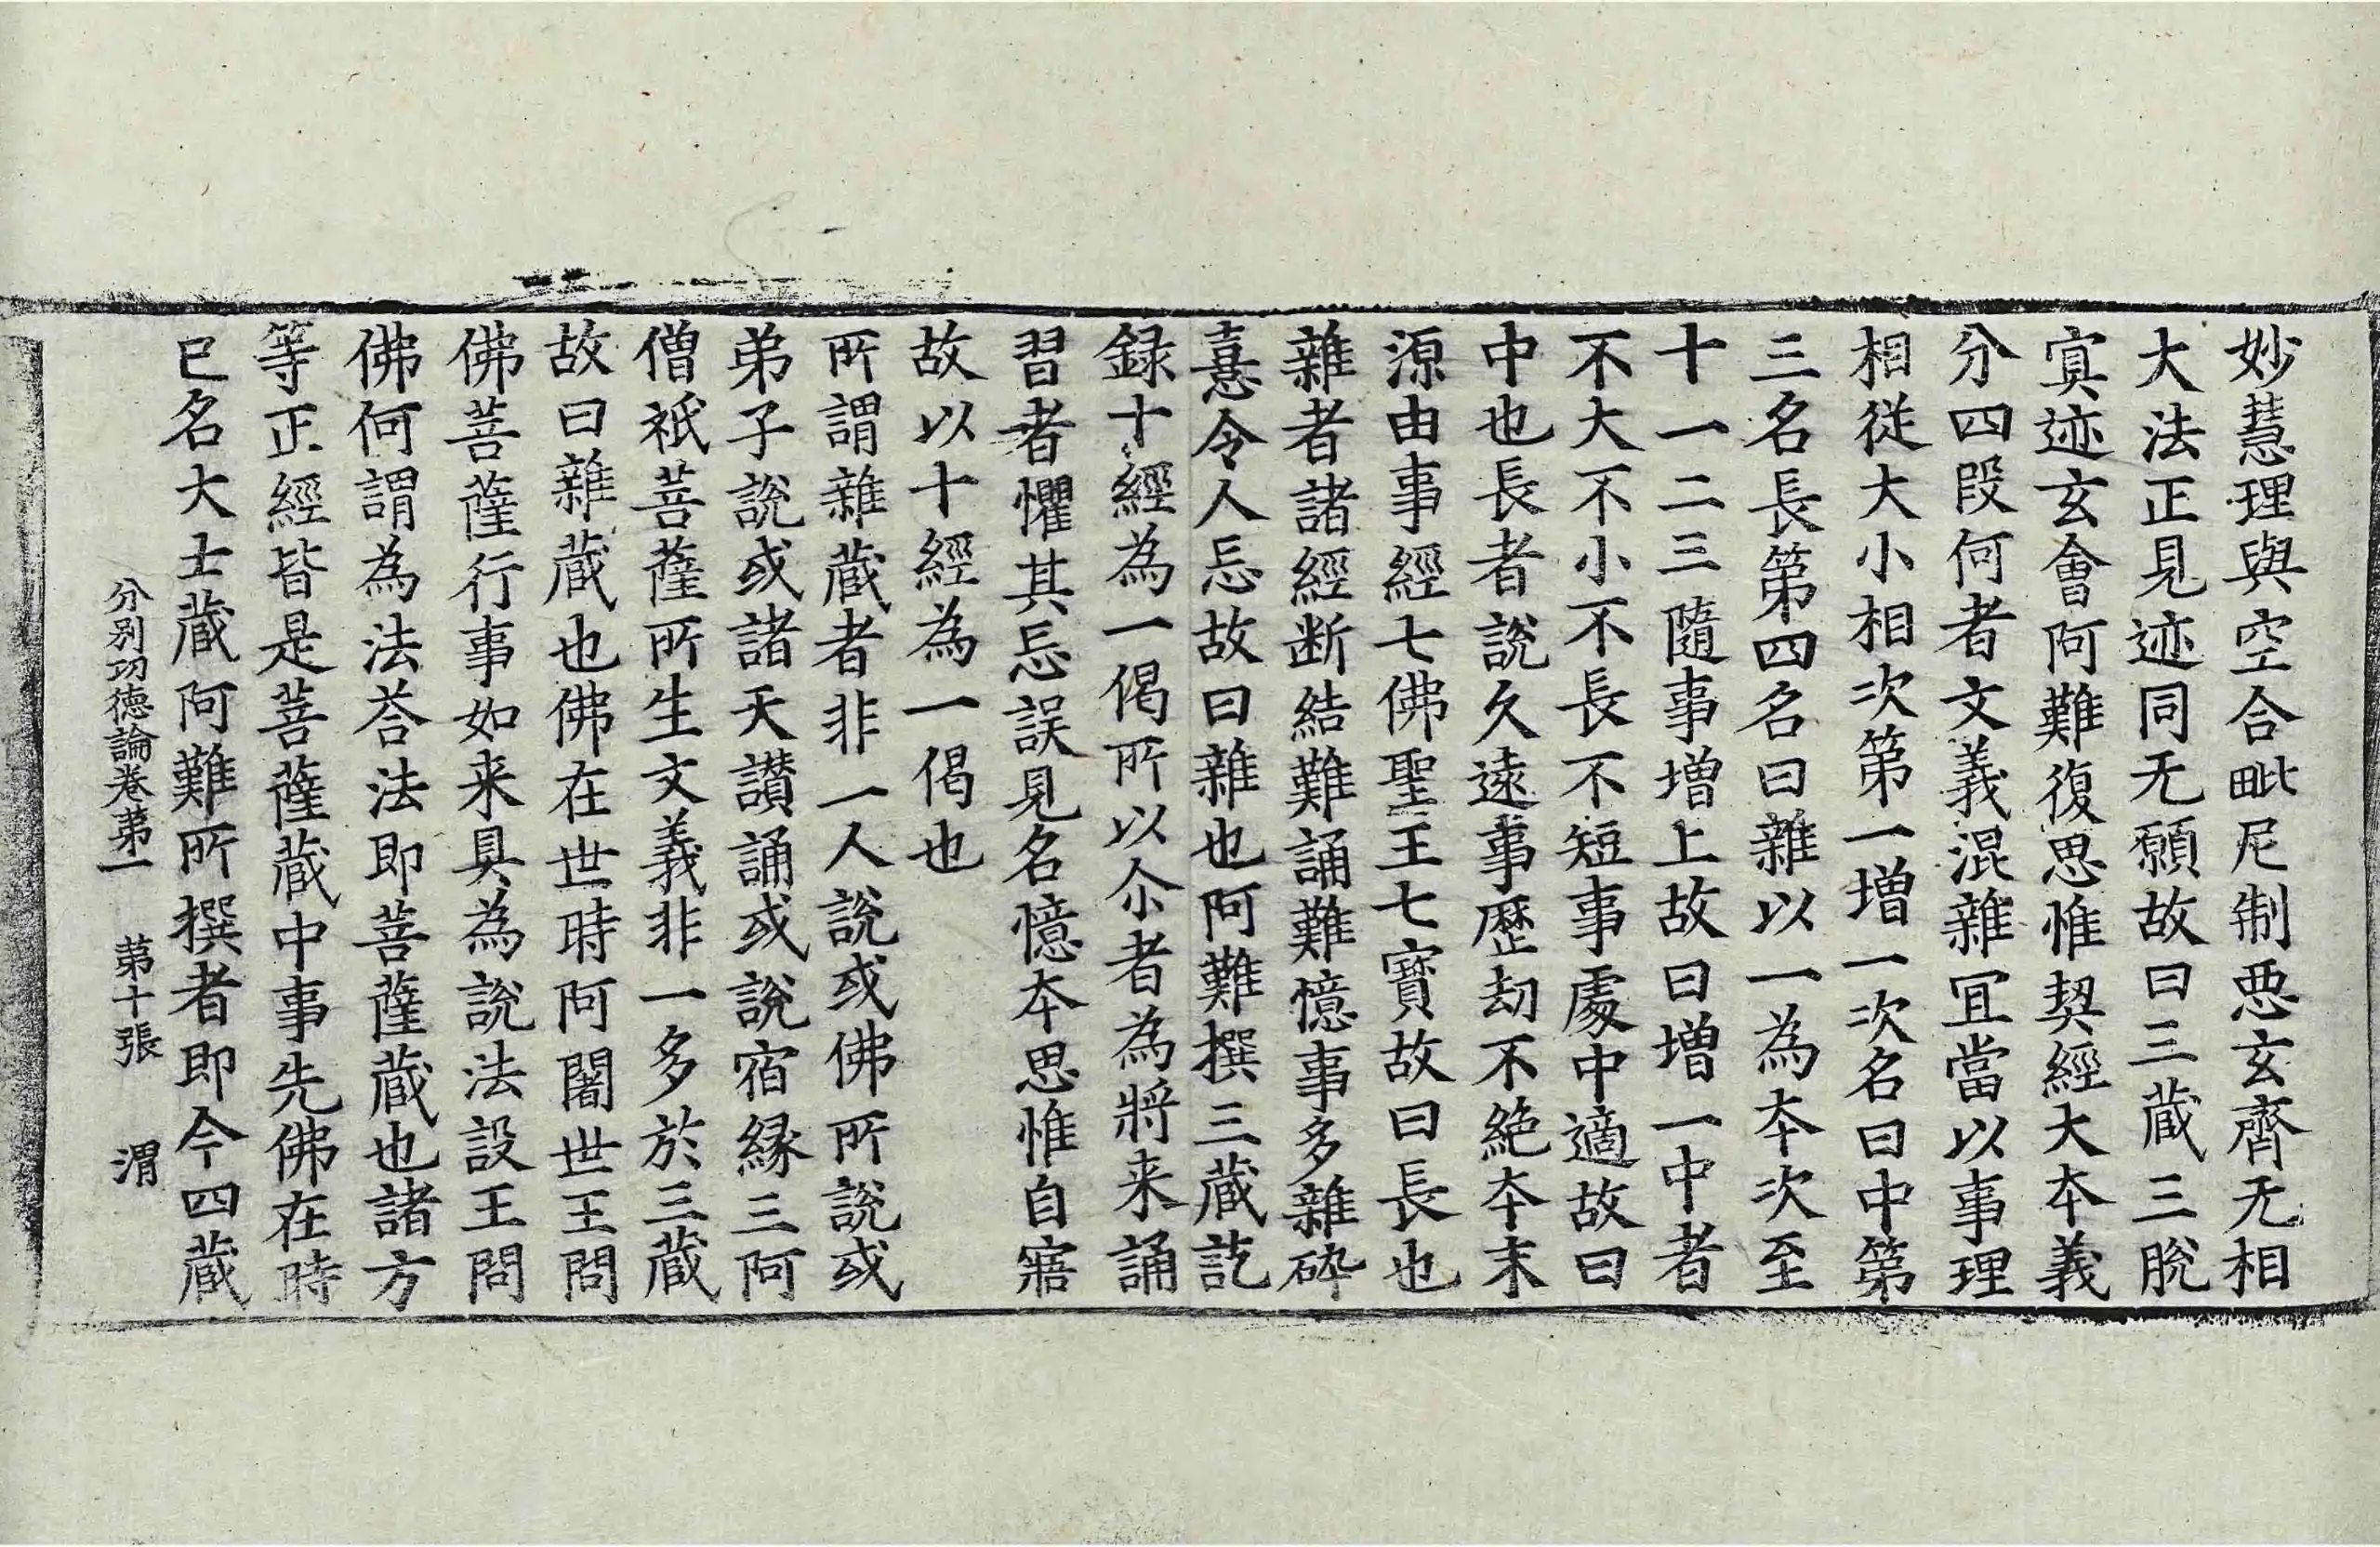 妙慧理與空合毗尼制惡玄齊无相
大法正見迹同无願故曰三蔵三脫
寘迹玄會阿難復思惟契經大夲義
分四段何者文義混雜冝當以事理
相從大小相次第一增一次名曰中第
三名長第四名曰雜以一為夲次至
十一二三隨事增上故曰增一中者
不大不小不長不短事處中適故曰
中也長者說久遠事歷劫不絶夲末
源由事經七佛聖王七寳故曰長也
雜者諸經断結難誦難憶事多雜碎
憙令人忘故曰雜也阿難撰三蔵訖
録十經為一偈所以尒者為將来誦
習者懼其忘誤見名憶夲思惟自寤
故以十經為一偈也
所謂雜蔵者非一人說或佛所說或
弟子說或諸天讃誦或說宿縁三阿
僧祇菩薩所生文義非一多於三蔵
故曰雜蔵也佛在世時阿闍世王問
佛菩薩行事如来具為說法設王問
佛何謂為法荅法即菩薩蔵也諸方
等正經皆是菩薩蔵中事先佛在時
已名大士蔵阿難所撰者即今四蔵
分别功德論卷第一 第十張 渭